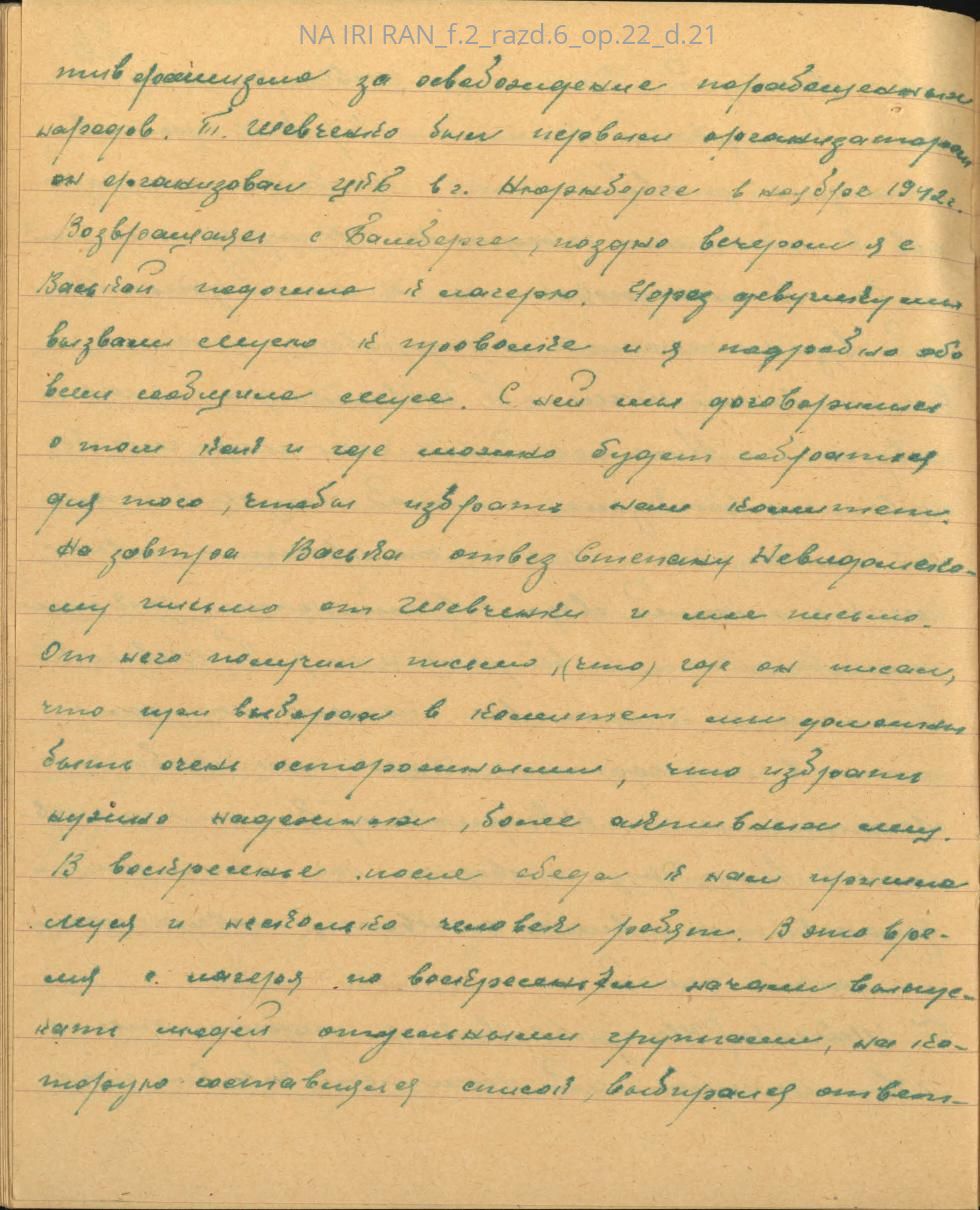 NA IRI RAN_f.2_razd.6_op.22_d.21
тив фашизма за освобождение порабощенных
народов. Т. Шевченко был первым организатором
он организовал в г. Нюрнберге в ноябре 1942 г.
Возвращаясь с Бамберга, поздно вечером я с
Васькой подошла к лагерю. Через девушку мы
вызвали Мусю к проволке и я подробно обо
всем сообщила Мусе. С ней мы договорились
о том как и где можно будет собраться
для того, чтобы избрать нам комитет.
На завтра Васька отвез Степану Невидомско-
му письмо от Шевченки и мое письмо.
От него получил письмо, (что) где он писал,
что при выборах в комитет мы должны
быть очень осторожными, что избрать
нужно надежных, более активных лиц.
В воскресенье после обеда к нам пришла
Муся и несколько человек ребят. В это вре-
мя с лагеря по воскресеньям начали выпус-
кать людей отдельными группами, на ко-
торую составлялся список, выбирался ответ-